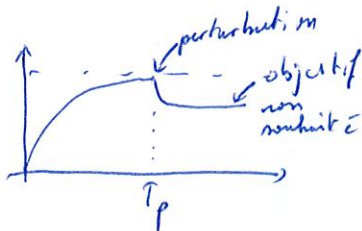 perturbation
objectif
non
souhaité
Tp